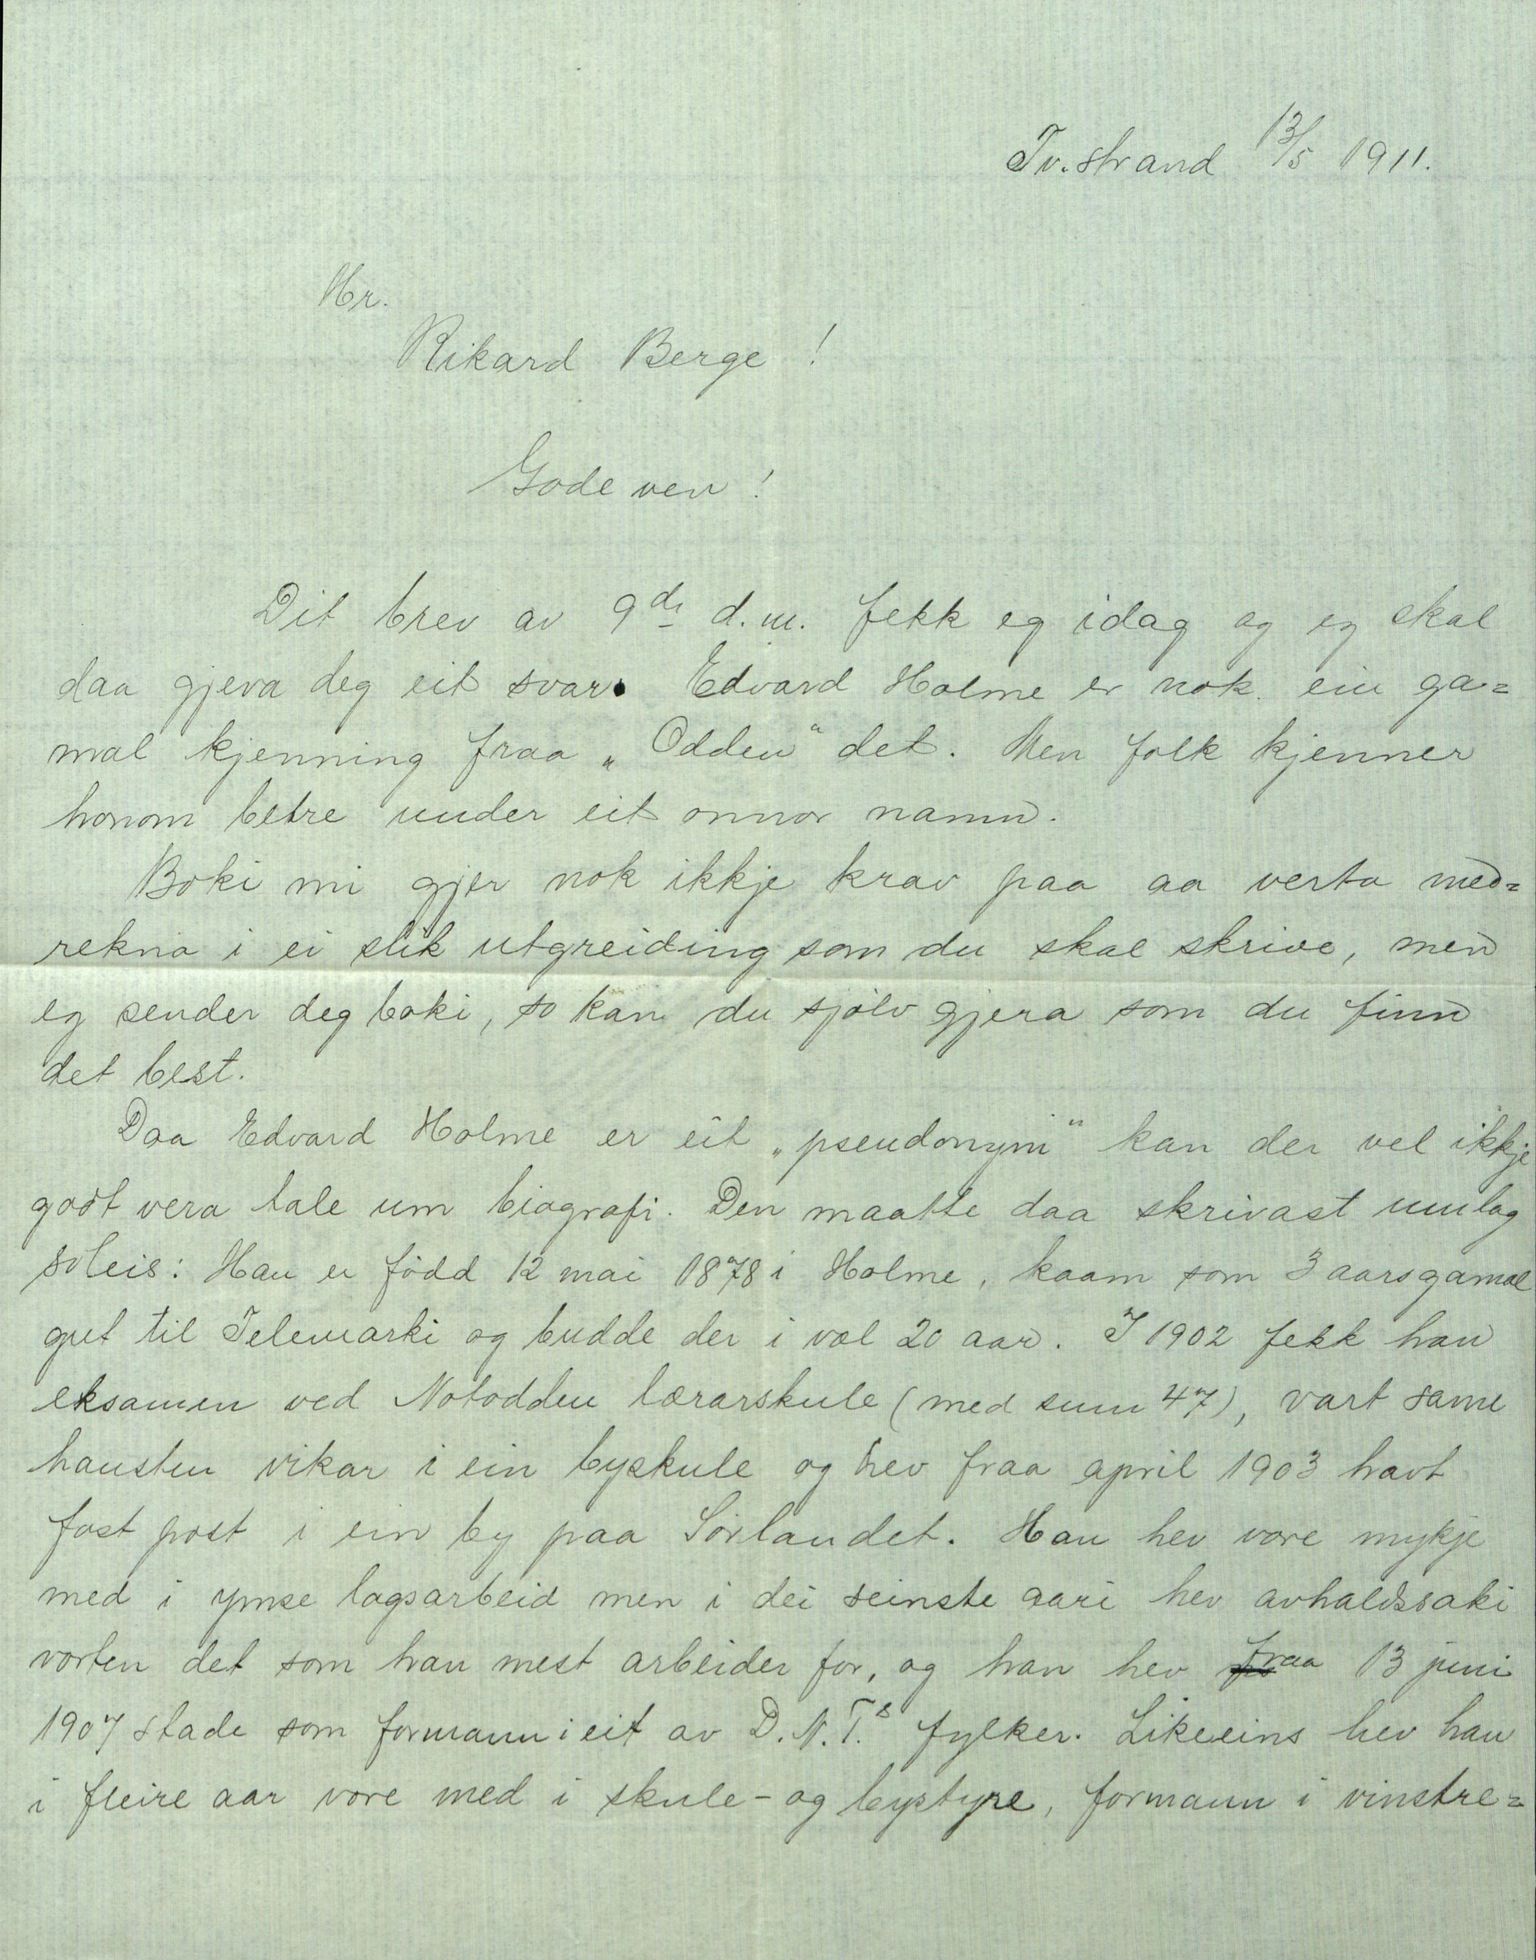 Tv.strand 13/5 1911.
Hr.
Rikard Berge!
Gode ven!
Dit brev av 9de d.m. fekk eg idag og eg skal
daa gjeva deg eit svar. Edvard Holme er nok ein ga=
mal kjenning fraa „Odden“ det. Men folk kjenner
honom betre under eit onnor namn.
Boki mi gjer nok ikkje krav paa aa verta med=
rekna i ei slik utgreiding som du skal skrive, men
eg sender deg boki, so kan du sjølv gjera som du finn
det best.
Daa Edvard Holme er eit „pseudonym“ kan der vel ikkje
godt vera tale um biografi. Den maatte daa skrivast umlag
soleis: Han er fødd 12 mai 1878 i Holme, kaam som 3 aarsgamal
gut til Telemarki og budde der i vel 20 aar. I 1902 fekk han
eksamen ved Notodden lærarskule (med sum 47), vart same
hausten vikar i ein byskule og hev fraa april 1903 havt
fast post i ein by paa Sørlandet. Han hev vore mykje
med i ymse lagsarbeid men i dei seinste aari hev avhaldssaki
vorten det som han mest arbeider for, og han hev fraa 13 juni
1907 stade som formann i eit av D.N.T.s fylker. Likeeins hev han
i fleire aar vore med i skule- og bystyre, formann i vinstre=